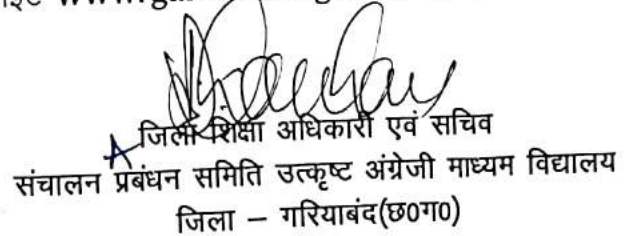 जिला शिक्षा अधिकारी एवं सचिव
संचालन प्रबंधन समिति उत्कृष्ट अंग्रेजी माध्यम विद्यालय
जिला – गरियाबंद(छ0ग0)